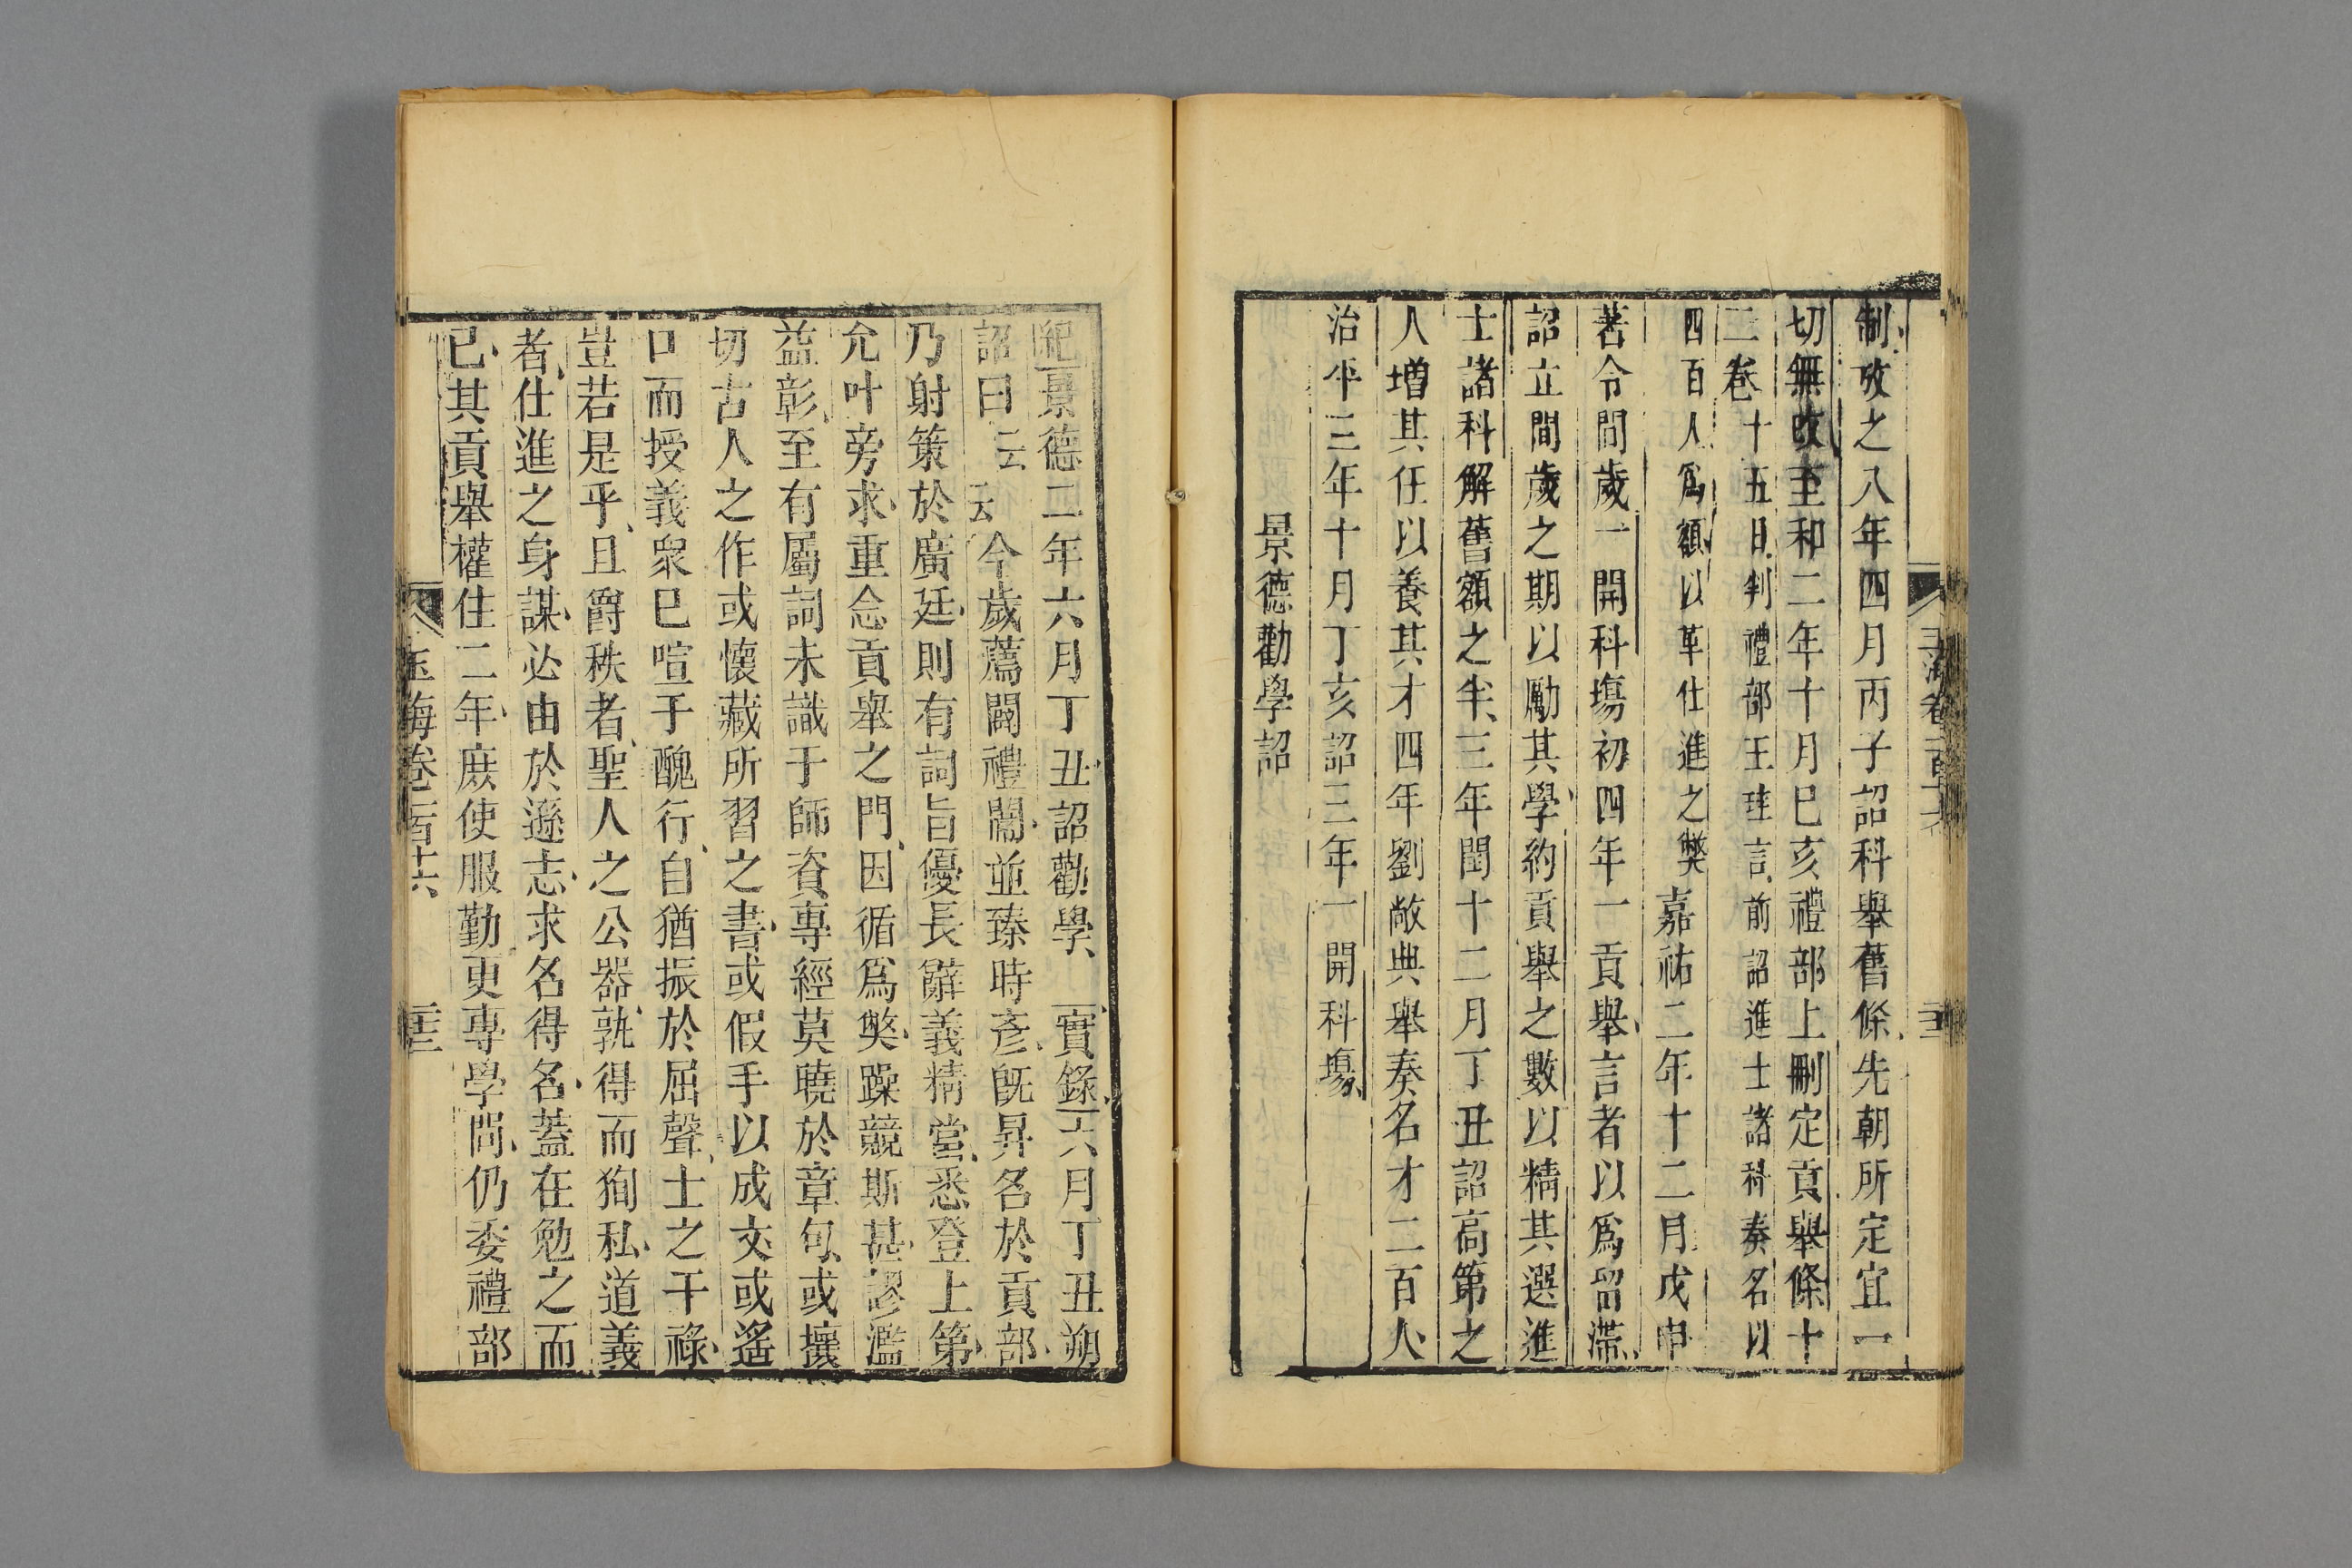 制攷之八年四月丙子詔科舉舊條先朝所定宜一
切無改至和二年十月巳亥禮部上刪定貢舉條十
二卷十五日判禮部王珪言前詔進士諸科奏名以
四百人爲額以革仕進之弊嘉祐二年十二月戊申
著令間歲一開科塲初四年一貢舉言者以爲留滯
詔立間歲之期以勵其學約貢舉之數以精其選進
士諸科解舊額之半三年閏十二月丁丑詔高第之
人增其任以養其才四年劉敞典舉奏名才二百人
治平三年十月丁亥詔三年一開科塲
景德勸學詔
紀景德二年六月丁丑詔勸學實錄六月丁丑朔
詔曰云云今歲薦闢禮闈並臻時彥旣昇名於貢部
乃射策於廣廷則有詞旨優長辭義精當悉登上第
允叶旁求重念貢舉之門因循爲弊躁競斯甚謬濫
益彰至有屬詞未識于師資專經莫曉於章句或攘
切古人之作或懷藏所習之書或假手以成文或遙
口而授義衆巳喧于醜行自猶振於屈聲士之干祿
豈若是乎且爵秩者聖人之公器孰得而狥私道義
者仕進之身謀必由於遜志求名得名蓋在勉之而
已其貢舉權住二年庶使服勤更專學問仍委禮部
玉海卷一百十六
二十三